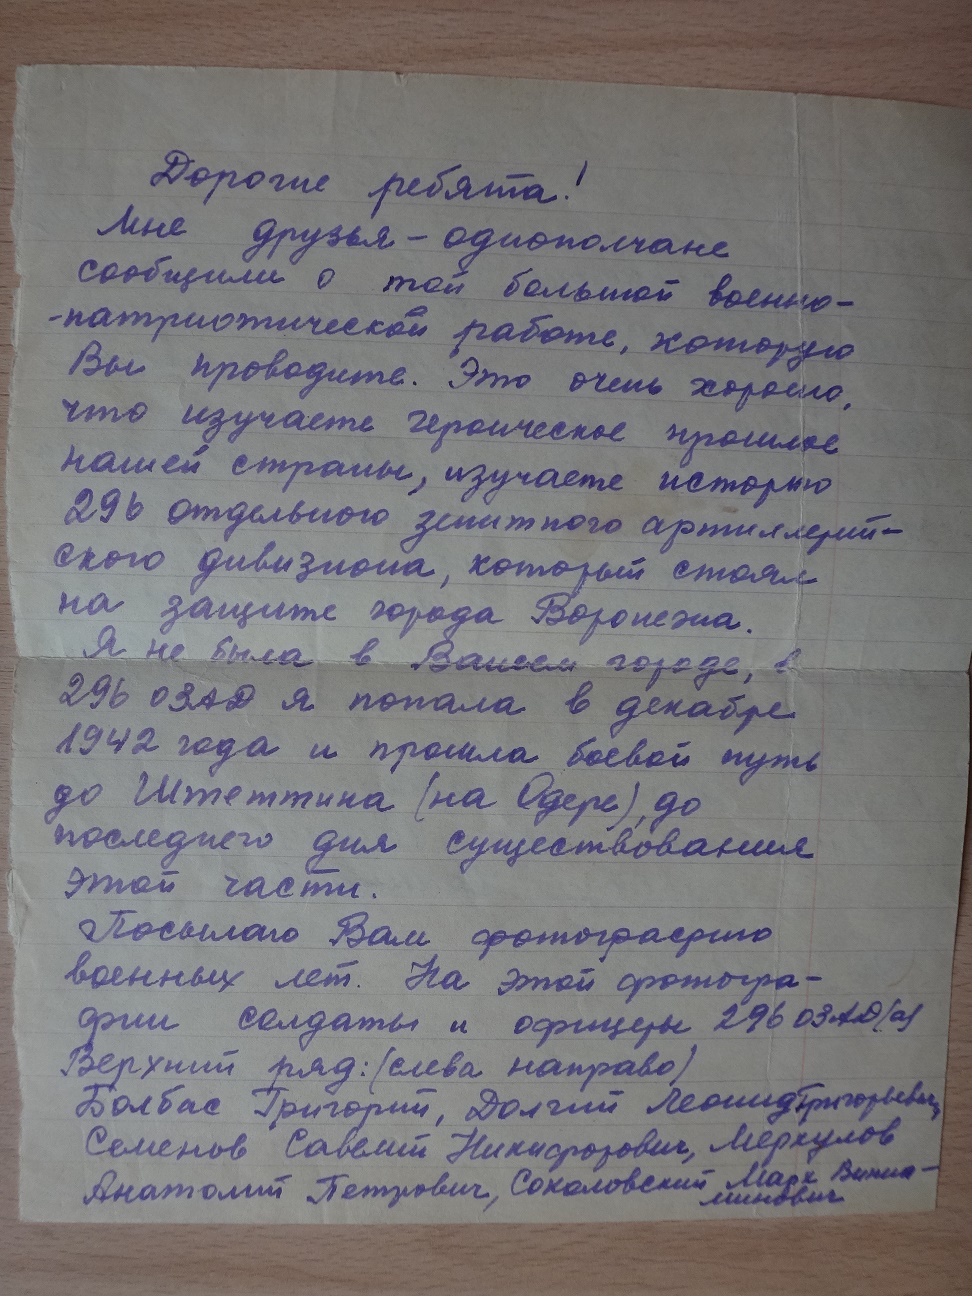 Дорогие ребята!
Мне друзья - однополчане
сообщили о той большой военно-
-патриотической работе, которую
Вы проводите. Это очень хорошо,
что изучаете героическое прошлое
нашей страны, изучаете историю
296 отдельного зенитного артиллерий-
ского дивизиона, который стоял
на защите города Воронежа.
Я не была в Вашем городе, в
296 ОЗАД я попала в декабре
1942 года и прошла боевой путь
до Штеттина (на Одере), до
последнего дня существования
этой части.
Посылаю Вам фотографию
военных лет. На этой фотогра-
фии солдаты и офицеры 296 ОЗАД(а)
Верхний ряд: (слева направо)
Болбас Григорий, Долгий Леонид Григорьевич,
Семенов Савелий Никифорович, Меркулов
Анатолий Петрович, Сокаловский Марк Виниа-
минович